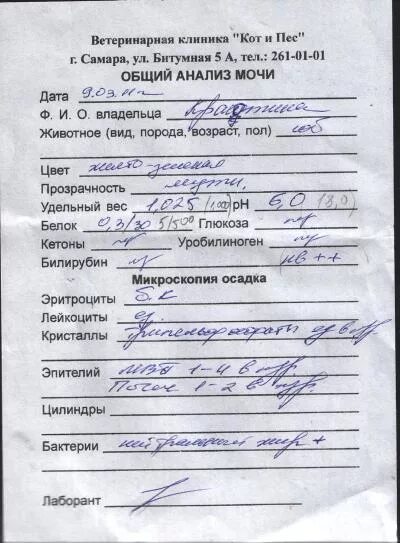 Ветеринарная клиника "Кот и Пес"
г. Самара, ул. Битумная 5 А, тел.: 261-01-01
ОБЩИЙ АНАЛИЗ МОЧИ
Дата 9.03.11г
Ф. И. О. владельца
Животное (вид, порода, возраст, пол) соб
Цвет желто-зеленая
Прозрачность мутн.
Удельный вес 1,025 /1,000 pH 6,0 (8,0)
Белок 0,3/30 5/500 Глюкоза нг
Кетоны нг Уробилиноген нг
Билирубин нг кв ++
Микроскопия осадка
Эритроциты б.к
Лейкоциты ед.
Кристаллы трипельфосфаты ед в п/зр.
Эпителий МВП 1-4 в п/зр.
Почеч 1-2 в п/зр.
Цилиндры
Бактерии нейтральный жир +
Лаборант